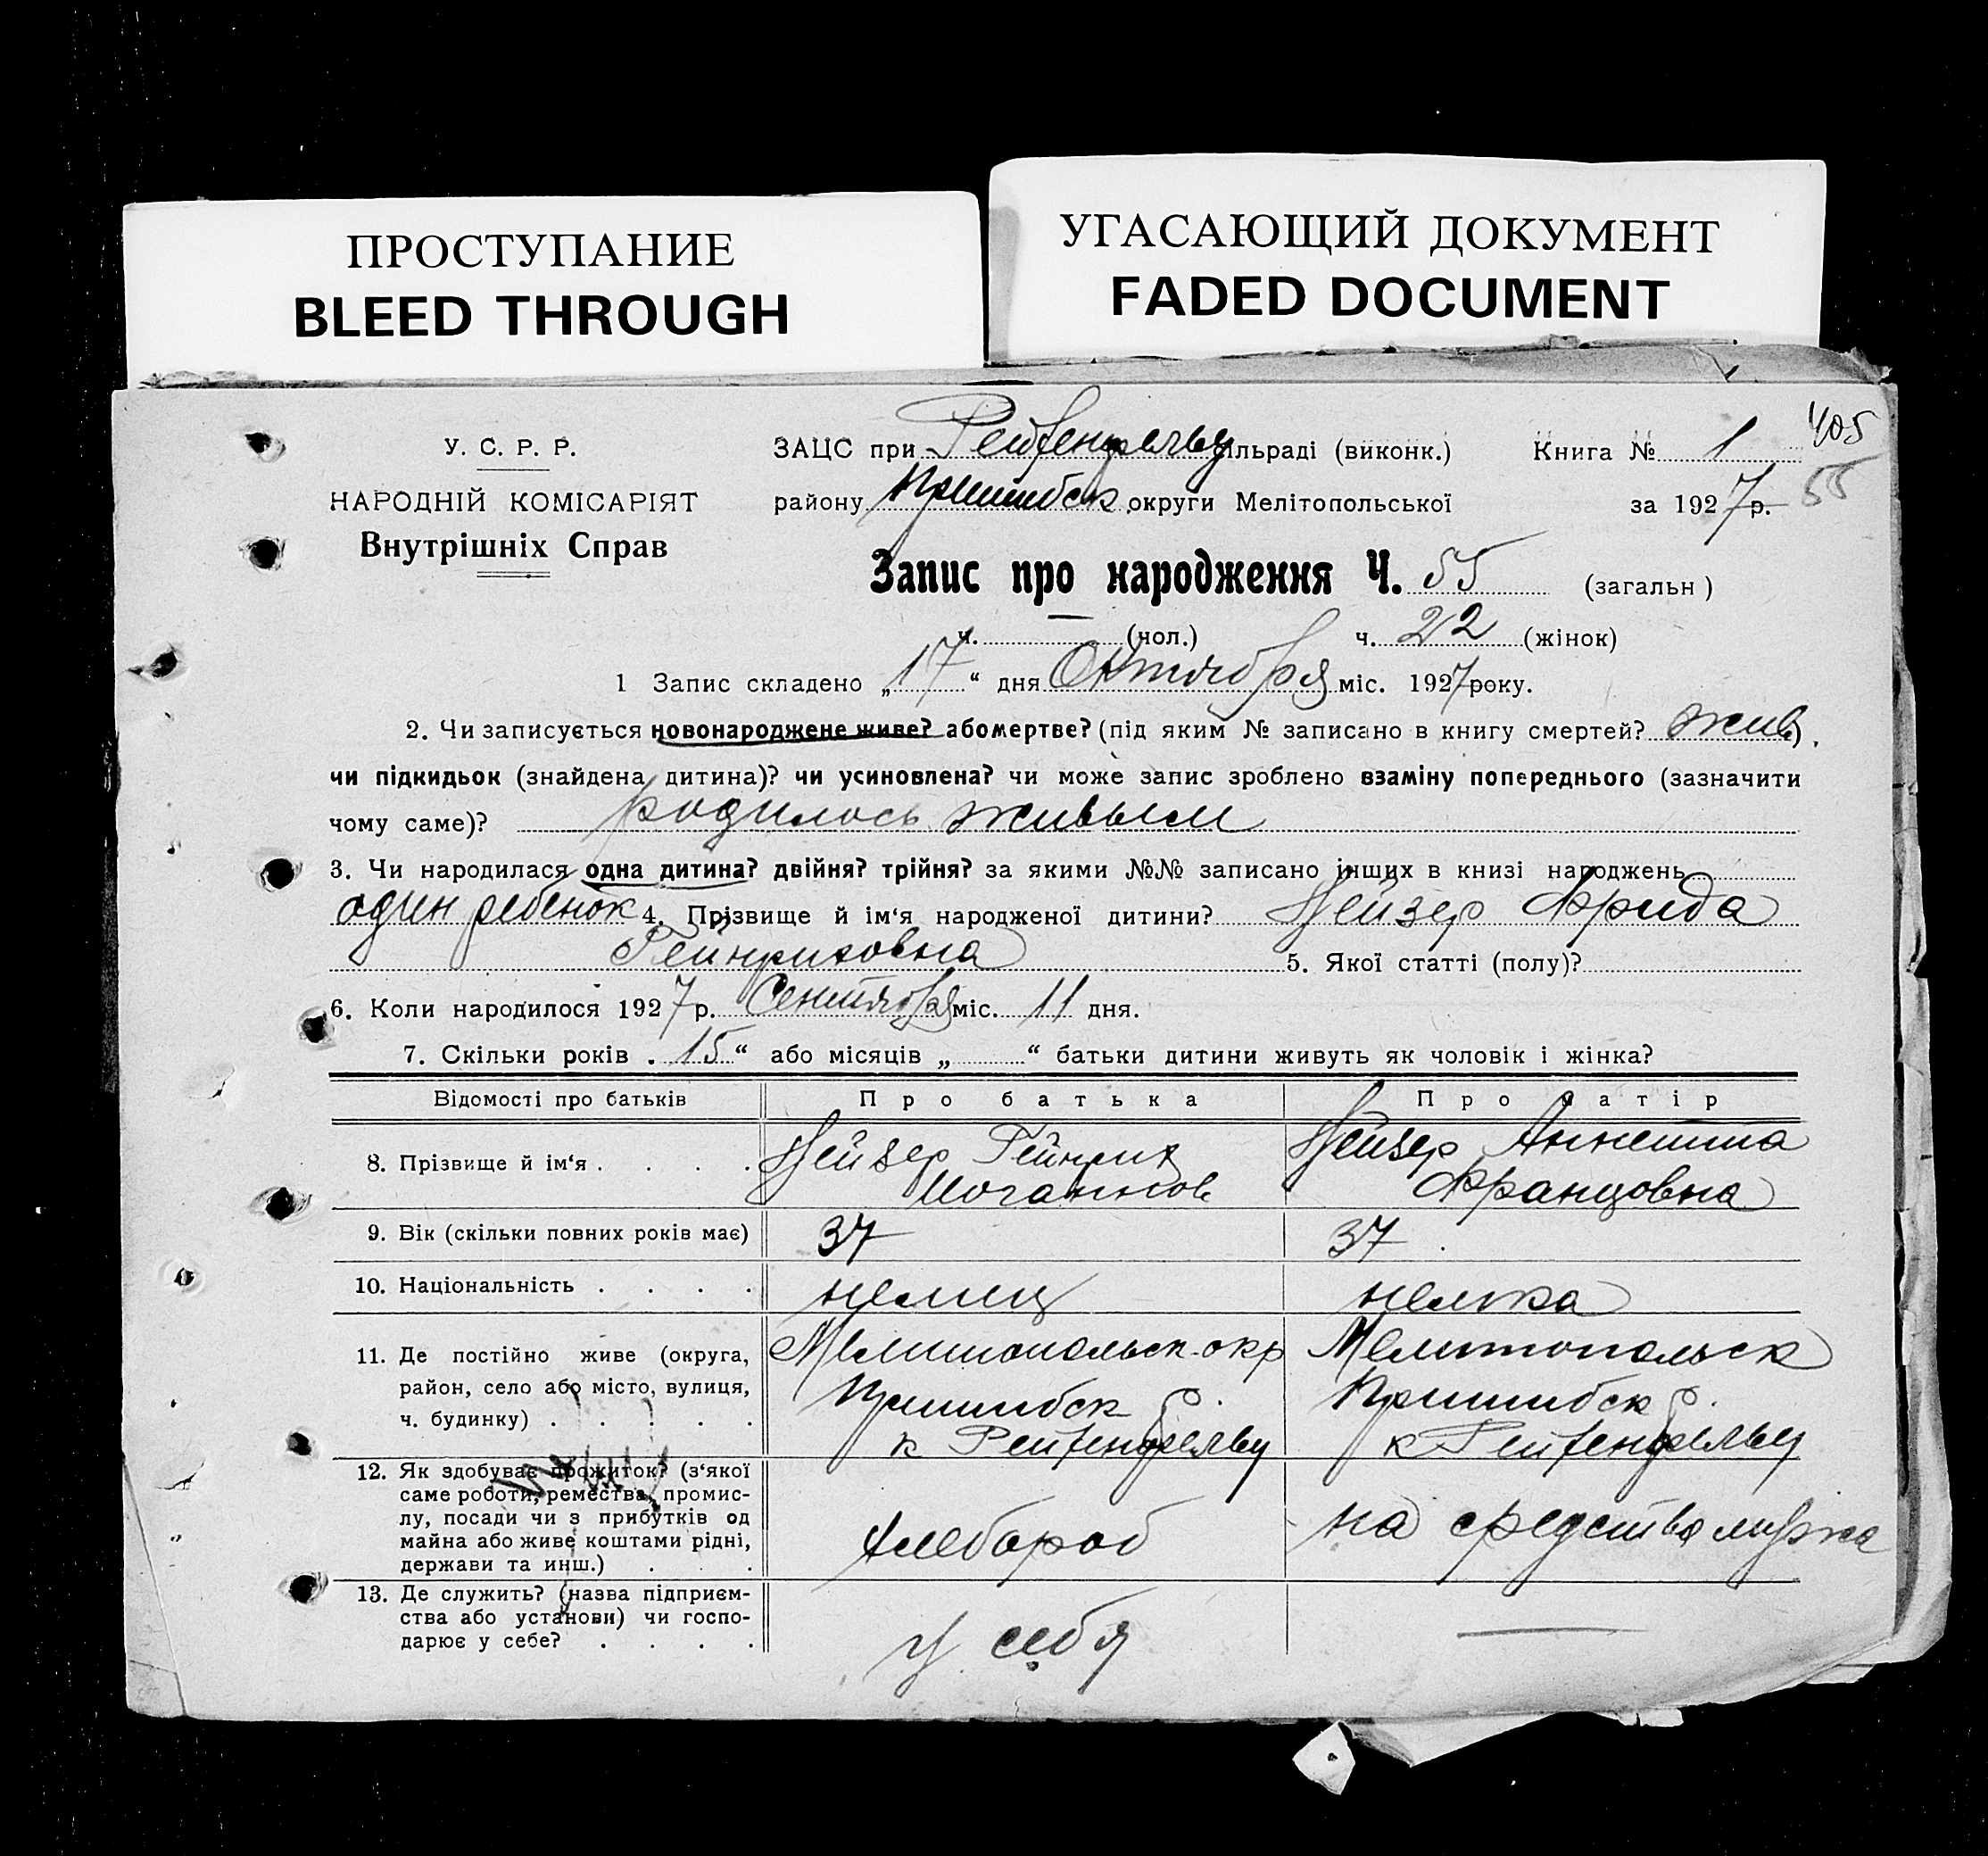 ПРОСТУПАНИЕ
BLEED THROUGH
УГАСАЮЩИЙ ДОКУМЕНТ
FADED DOCUMENT
405
У. С. Р. Р.
НАРОДНІЙ КОМІСАРІЯТ
Внутрішніх Справ
ЗАЦС при Рейхенфельду ільраді (виконк.) Книга № 1
району Пришибск округи Мелітопольської за 1927 р. 55
Запис про народження Ч. 55 (загальн)
ч. (чол.) ч. 22 (жінок)
1 Запис складено „17“ дня Октября міс. 1927 року.
2. Чи записується новонароджене живе? або мертве? (під яким № записано в книгу смертей? жив).
чи підкидьок (знайдена дитина)? чи усиновлена? чи може запис зроблено взаміну попереднього (зазначити
чому саме)? родилось живым
3. Чи народилася одна дитина? двійня? трійня? за якими №№ записано інших в книзі народжень
один ребенок 4. Прізвище й ім‘я народженої дитини? Нейзер Фрида
Гейнриховна 5. Якої статті (полу)?
6. Коли народилося 1927 р. Сентября міс. 11 дня.
7. Скільки років „15“ або місяців „ “ батьки дитини живуть як чоловік і жінка?
Відомості про батьків Про батька Про матір
8. Прізвище й ім‘я . . . . Нейзер Гейнрих Нейзер Аннетта
Иоганнов Францовна
9. Вік (скільки повних років має) 37 37
10. Національність . . . . немец немка
11. Де постійно живе (округа, Мелитопольск окр Мелитопольск
район, село або місто, вулиця, Пришибск р. Пришибск р.
ч. будинку) . . . . . к Рейхенфельду к Рейхенфельду
12. Як здобуває прожиток? (з‘якої
саме роботи, ремества, промис-
лу, посади чи з прибутків од хлебороб на средства мужа
майна або живе коштами рідні,
держави та инш.) . . .
13. Де служить? (назва підприєм-
ства або установи) чи госпо- у себя
дарює у себе? . . . .